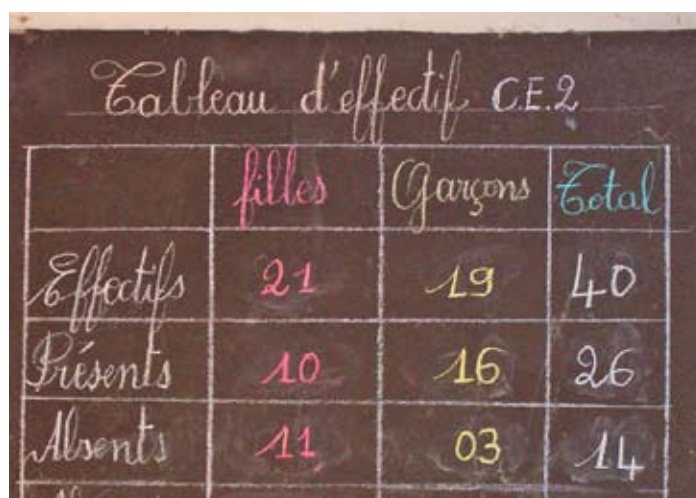 Tableau d'effectif C.E.2
filles Garçons Total
Effectifs 21 19 40
Présents 10 16 26
Absents 11 03 14